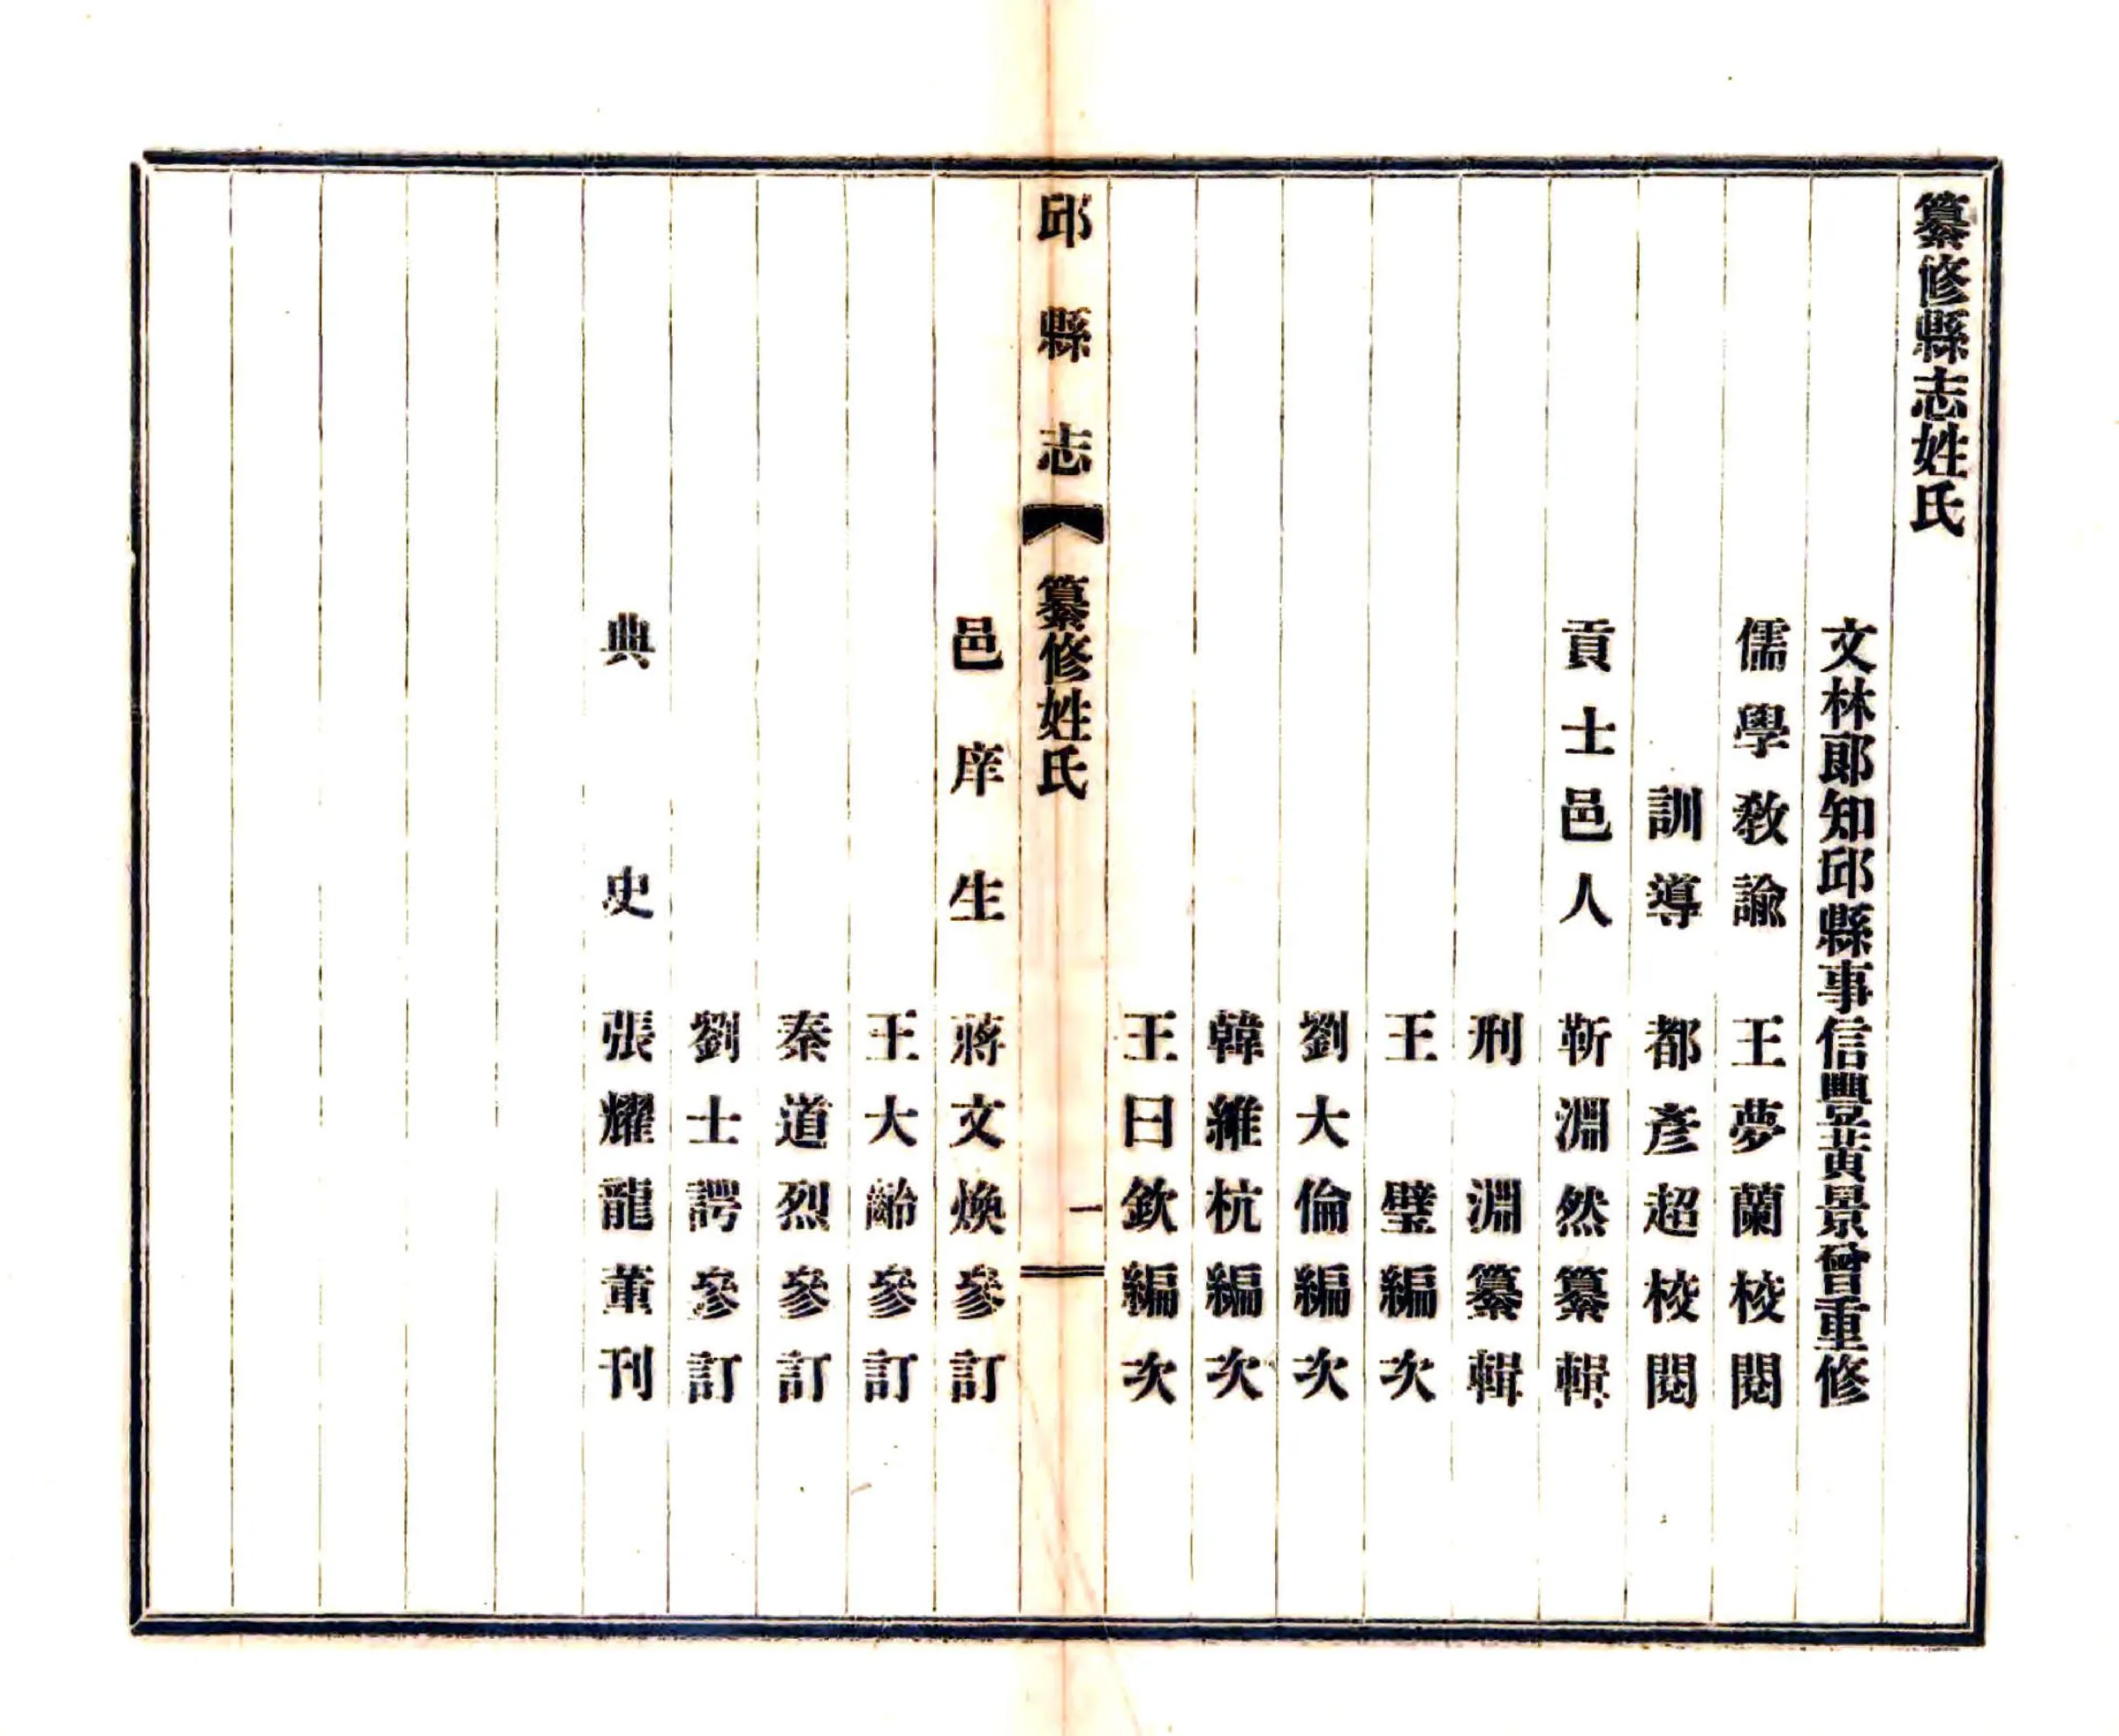 纂修縣志姓氏
文林郎知邱縣事信豐黃景曾重修
儒學教諭 王夢蘭校閱
訓導 都彥超校閱
貢士邑人 靳淵然纂輯
刑淵纂輯
王璧編次
劉大倫編次
韓維杭編次
王曰欽編次
邱縣志 纂修姓氏 一
邑庠生 蔣文煥參訂
王大齡參訂
秦道烈參訂
劉士諤參訂
典史 張耀龍董刊